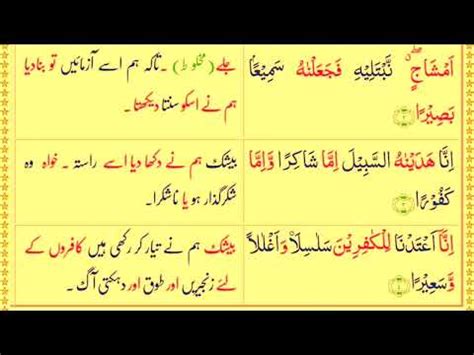 اَمْشَاجٍ ۖۗ نَّبْتَلِیْهِ فَجَعَلْنٰهُ سَمِیْعًۢا
بَصِیْرًا
جلے (مخلوط)۔ تاکہ ہم اسے آزمائیں تو بنادیا
ہم نے اسکو سنتا دیکھتا۔
اِنَّا هَدَیْنٰهُ السَّبِیْلَ اِمَّا شَاكِرًا وَّاِمَّا
كَفُوْرًا
بیشک ہم نے دکھا دیا اسے راستہ ۔ خواہ وہ
شکرگذار ہو یا ناشکرا۔
اِنَّاۤ اَعْتَدْنَا لِلْكٰفِرِیْنَ سَلٰسِلَا۟ وَاَغْلٰلًا
وَّسَعِیْرًا
بیشک ہم نے تیار کر رکھی ہیں کافروں کے
لئے زنجیریں اور طوق اور دہکتی آگ ۔